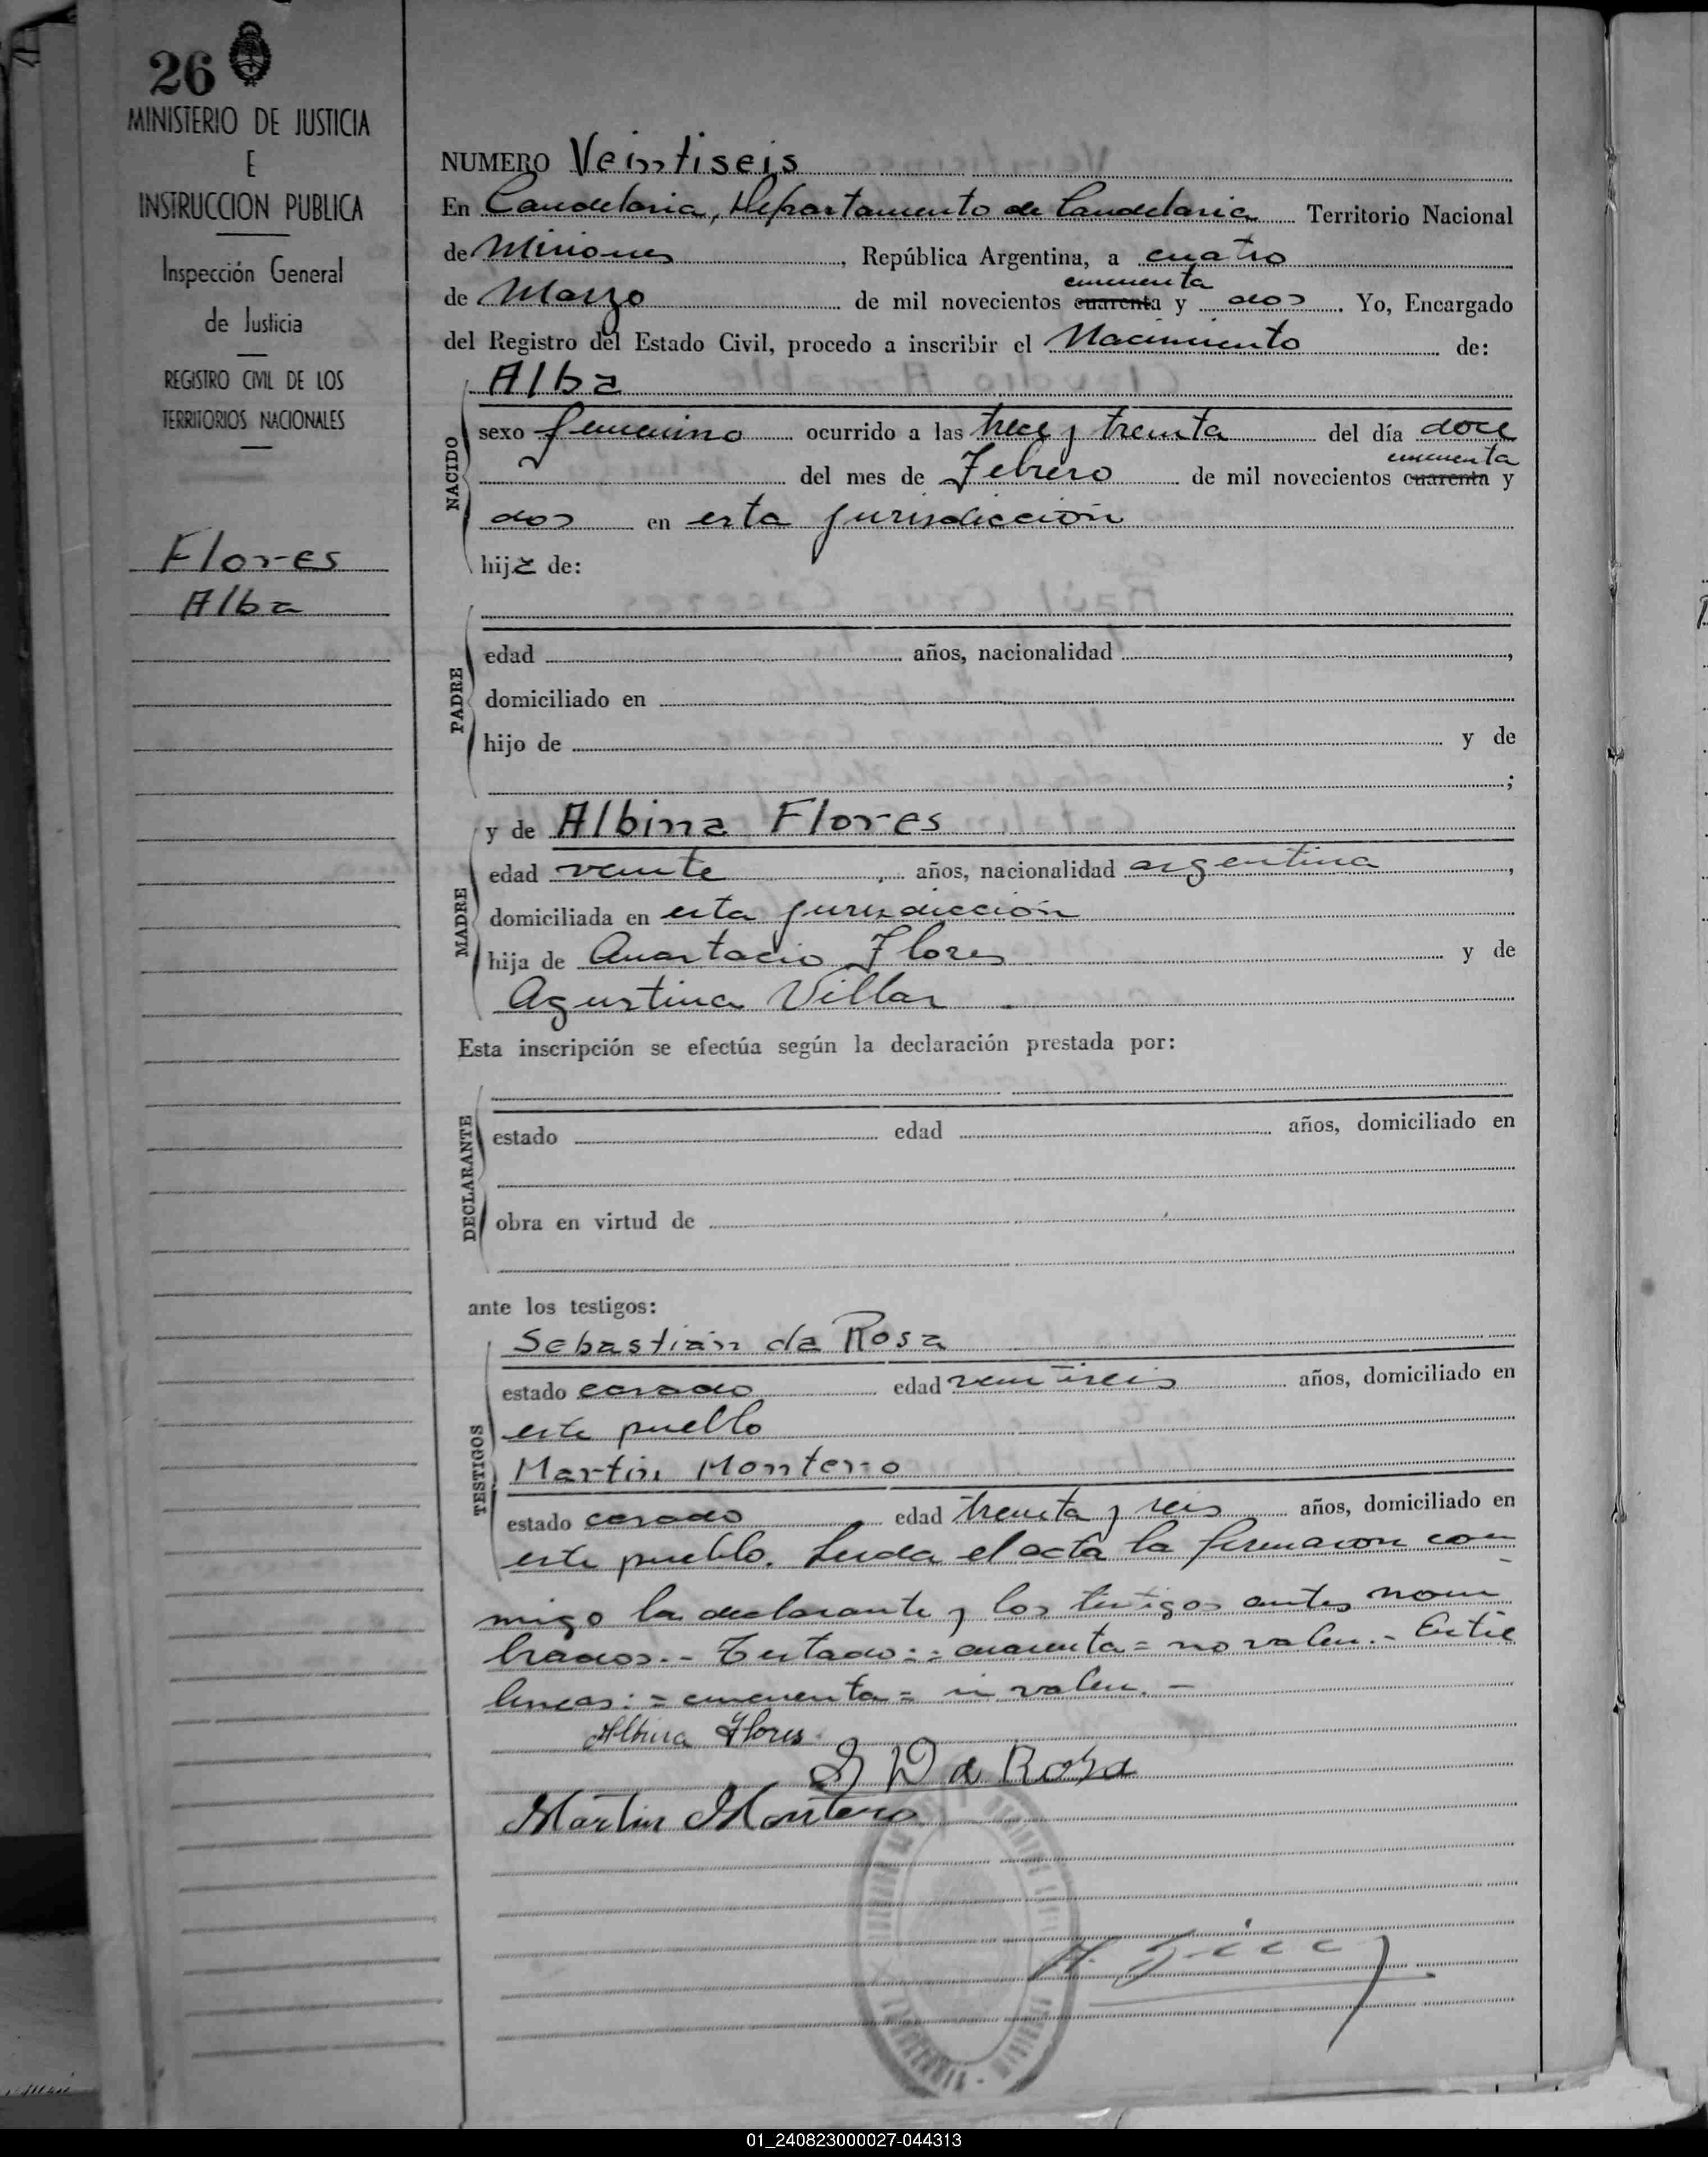 26
MINISTERIO DE JUSTICIA
E
INSTRUCCION PUBLICA
Inspección General
de Justicia
REGISTRO CIVIL DE LOS
TERRITORIOS NACIONALES
Flores
Alba
NUMERO Veintiseis
En Candelaria, Departamento de Candelaria Territorio Nacional
de Misiones, República Argentina, a cuatro
cincuenta
de Marzo de mil novecientos cuarenta y dos. Yo, Encargado
del Registro del Estado Civil, procedo a inscribir el Nacimiento de:
Alba
NACIDO
sexo femenino ocurrido a las trece y treinta del día doce
cincuenta
del mes de Febrero de mil novecientos cuarenta y
dos en esta jurisdicción
hija de:
PADRE
edad años, nacionalidad ,
domiciliado en
hijo de y de
;
MADRE
y de Albina Flores
edad veinte, años, nacionalidad argentina,
domiciliada en esta jurisdicción
hija de Anastacio Flores y de
Agustina Villar
Esta inscripción se efectúa según la declaración prestada por:
DECLARANTE
estado edad años, domiciliado en
obra en virtud de
ante los testigos:
TESTIGOS
Sebastián da Rosa
estado casado edad veintiseis años, domiciliado en
este pueblo
Martín Montero
estado casado edad treinta y seis años, domiciliado en
este pueblo. Leída el acta la firmaron con-
migo la declarante y los testigos antes nom
brados.- Testado: = cuarenta = no valen.- Entre
lineas: = cincuenta = si valen.-
Albina Flores
S Da Rosa
Martin Montero
01_240823000027-044313